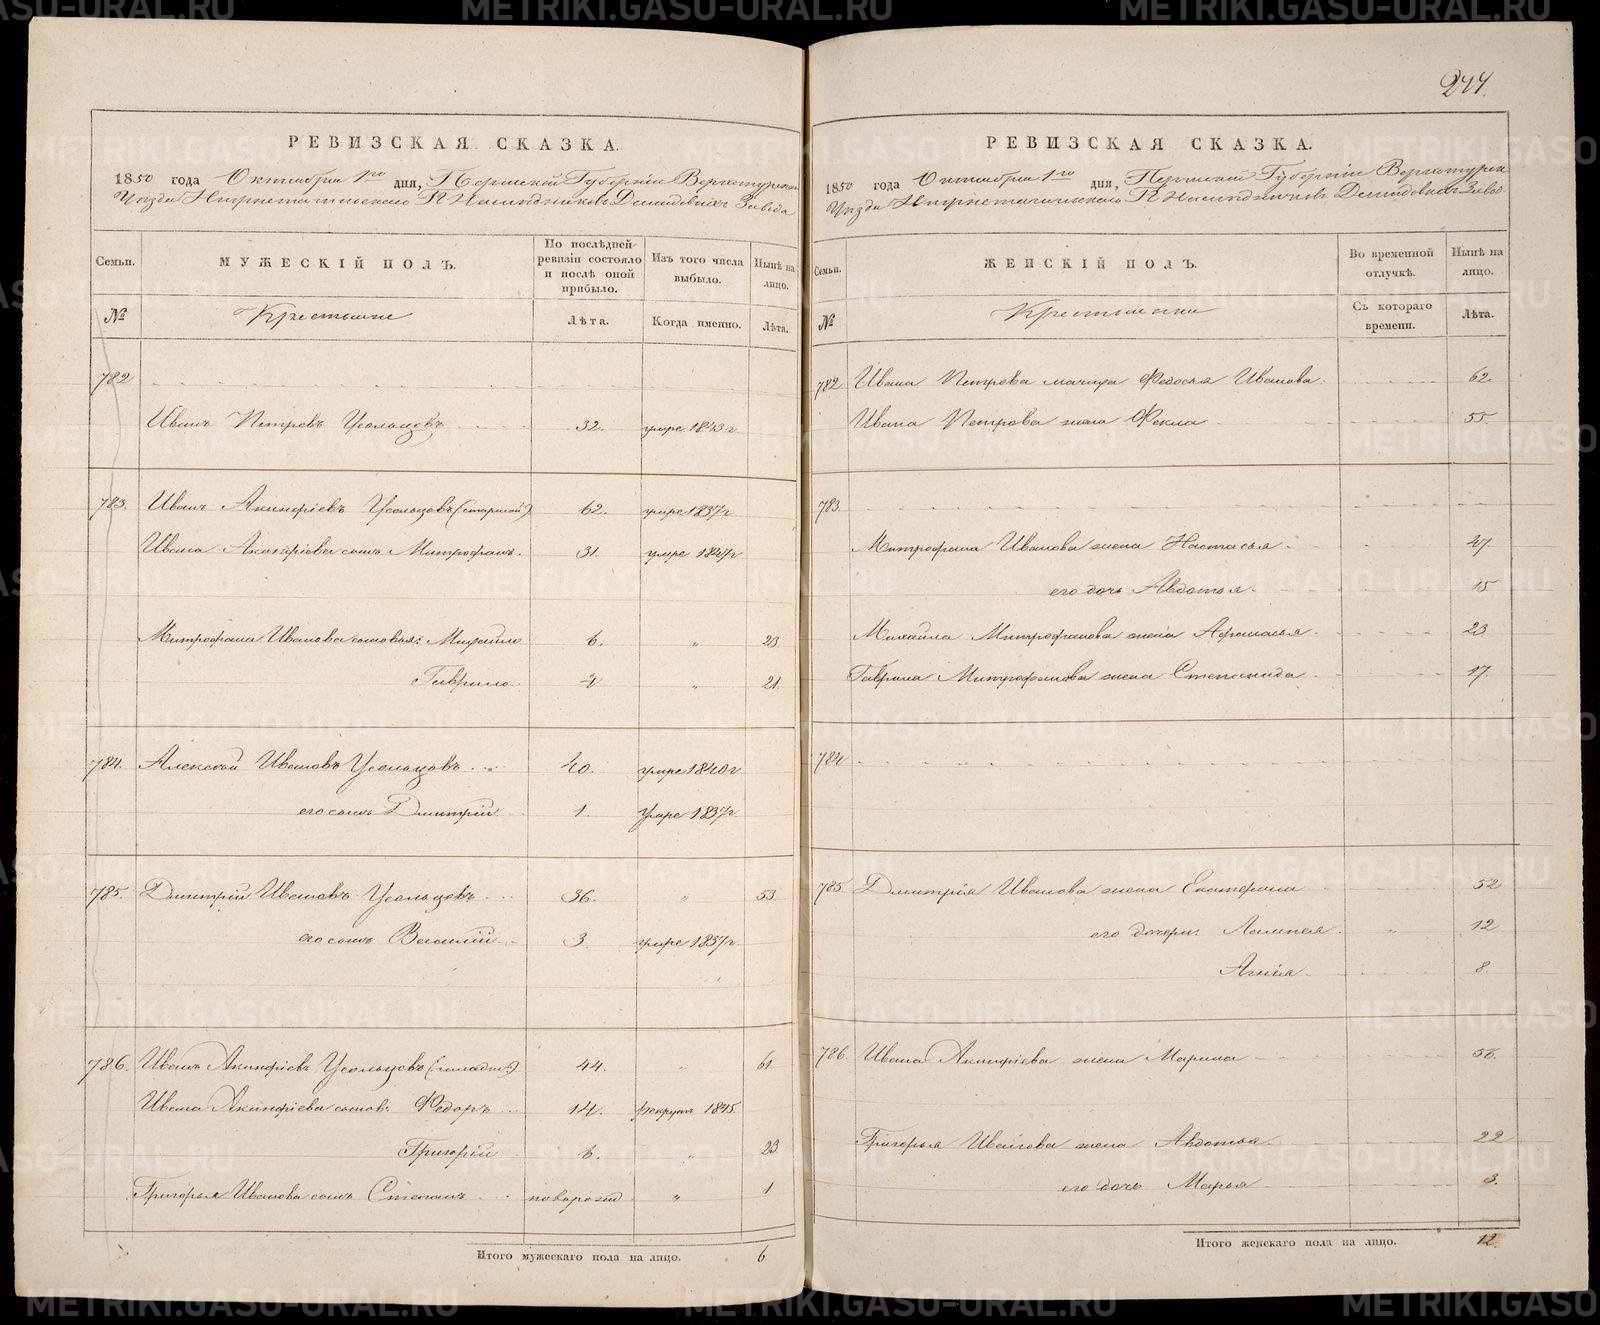 244.
РЕВИЗСКАЯ СКАЗКА.
1850 года Октября 1го дня, Пермской Губерніи Верхотурска
Уѣзда Нижнетагильскаго Наслѣдниковъ Демидовыхъ Завода
Семьи.
МУЖЕСКІЙ ПОЛЪ.
По послѣдней ревизіи состояло и послѣ оной прибыло.
Изъ того числа выбыло.
Нынѣ на лицо.
№
Крестьяне
Лѣта.
Когда именно.
Лѣта.
782
Иванъ Петровъ Усольцовъ 32. умре 1843 г
783. Иванъ Акинфіевъ Усольцовъ (старшой) 62. умре 1837 г
Ивана Акинфіева сынъ Митрофанъ. 31. умре 1847 г
Митрофана Иванова сыновья: Михайло 6. „ 23
Гаврило. „ 21.
784. Алексѣй Ивановъ Усольцовъ 40. умре 1840 г
его сынъ Дмитрій 1. Умре 1837 г
785. Дмитрій Ивановъ Усольцовъ 36. „ 53
его сынъ Василій 3. умре 1837 г
786. Иванъ Акинфіевъ Усольцовъ (младш:) 44. „ 61.
Ивана Акинфіева сынов: Федоръ 14. рекрутъ 1845.
Григорій 6. „ 23
Григорья Иванова сынъ Степанъ новорожд „ 1
Итого мужескаго пола на лицо. 6
РЕВИЗСКАЯ СКАЗКА.
1850 года Октября 1го дня, Пермской Губерніи Верхотурск
Уѣзда Нижнетагильскаго Наслѣдниковъ Демидовыхъ Завод
Семьи.
ЖЕНСКІЙ ПОЛЪ.
Во временной отлучкѣ.
Нынѣ на лицо.
№
Крестьянки
Съ котораго времени.
Лѣта.
782 Ивана Петрова мачиха Федосья Иванова. 62
Ивана Петрова жена Фекла 55.
783.
Митрофана Иванова жена Настасья 47.
его дочь Авдотья. 15
Михаила Митрофанова жена Афанасья 23
Гаврила Митрофанова жена Степанида 17.
784
785 Дмитрія Иванова жена Екатерина 52
его дочери: „ 12
Агнія 8.
786. Ивана Акинфіева жена Марина
Григорья Иванова жена Авдотья. 22
его дочь Марья 3.
Итого женскаго пола на лицо. 12.
METRIKI.GASO-URAL.RU